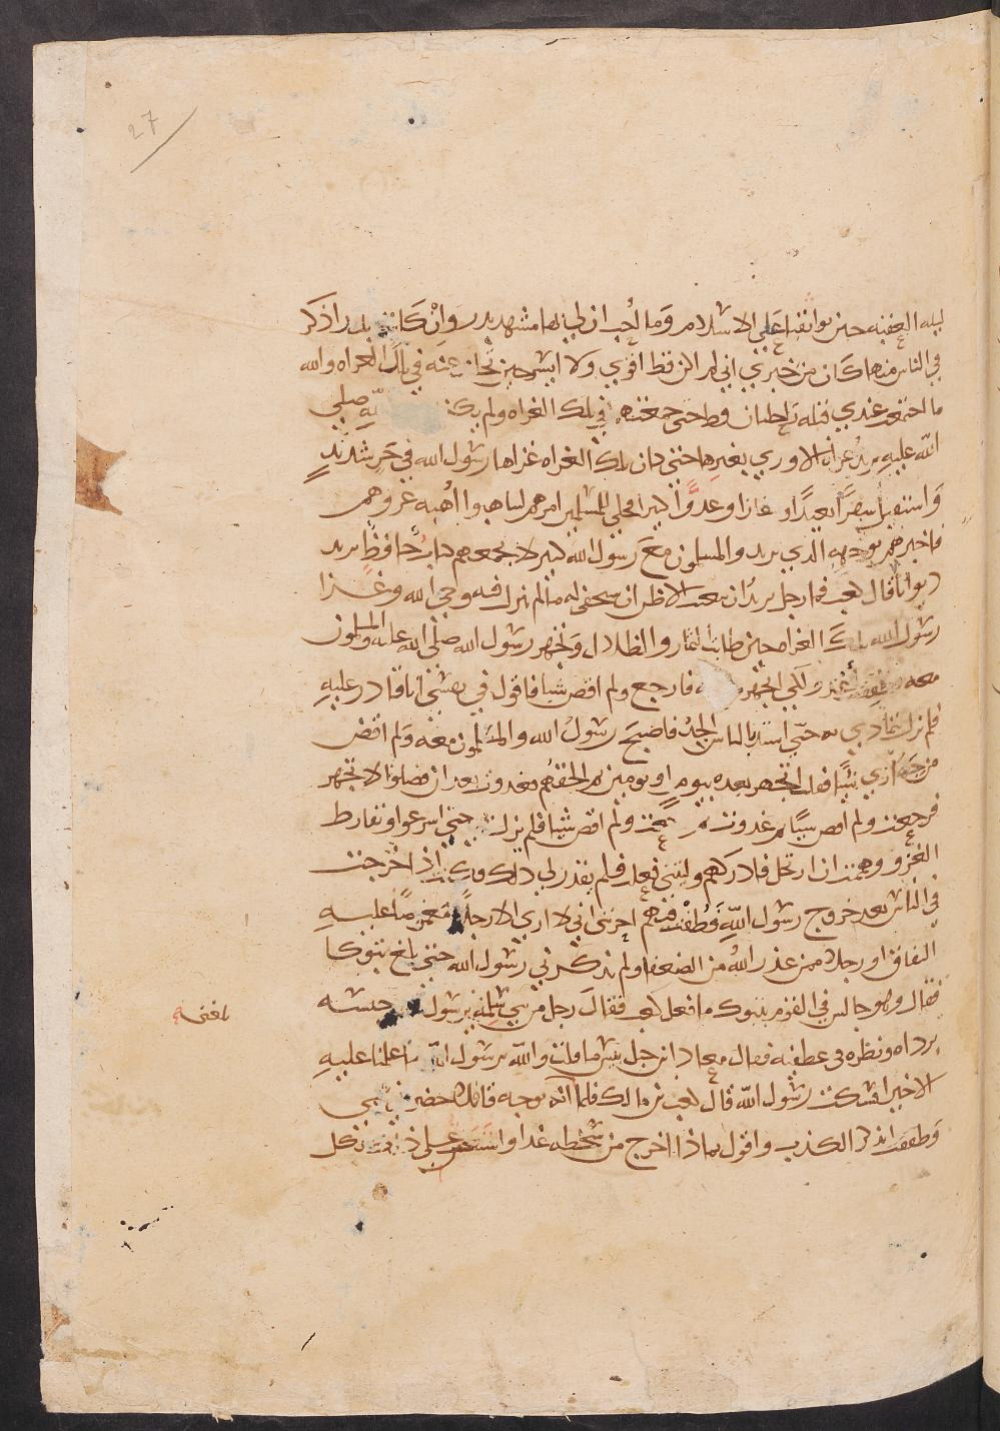 27
ليله العقبه حين تواثقنا على الاسلام وما احب ان لي بها مشهد بدر وان كانت بدر اذكر
في الناس منها كان من خبري اني لم اكن قط اقوى ولا ايسر حين تخلفت عنه في تلك الغزاه والله
ما اجتمعت عندي قبله راحلتان قط حتى جمعتهما في تلك الغزاه ولم يكن الله صلى
الله عليه يريد غزاة الا ورى بغيرها حتى كان تلك الغزاه غزاها رسول الله في حر شديد
واستقبل سفرا بعيدا ومفازا وعدوا كثيرا فجلى للمسلمين امرهم ليتاهبوا اهبه غزوهم
فاخبرهم بوجهه الذي يريد والمسلمون مع رسول الله كثير لا يجمعهم كتاب حافظ يريد
ديوانا قال كعب فما رجل يريد ان يتغيب الا ظن ان سيخفى له ما لم ينزل فيه وحي الله وغزا
رسول الله تلك الغزاه حين طابت الثمار والظلال وتجهز رسول الله صلى الله عليه والمسلمون
معه فطفقت اغدو لكي اتجهز معه فارجع ولم اقض شيا فاقول في نفسي انا قادر عليه
فلم يزل يتمادى به حتى اشتد بالناس الجد فاصبح رسول الله والمسلمون معه ولم اقض
من جهازي شيا فقلت اتجهز بعده بيوم او يومين ثم الحقهم فغدوت بعد ان فصلوا لاتجهز
فرجعت ولم اقض شيا ثم غدوت ثم رجعت ولم اقض شيا فلم يزل حتى اسرعوا وتفارط
الغزو وهممت ان ارتحل فادركهم وليتني فعلت فلم يقدر لي ذلك فكنت اذا خرجت
في الناس بعد خروج رسول الله فطفت فيهم احزنني اني لا ارى الا رجلا مغموصا عليه
النفاق او رجلا ممن عذر الله من الضعفا ولم يذكرني رسول الله حتى بلغ تبوكا
فقال وهو جالس في القوم بتبوك ما فعل كعب فقال رجل من بني سلمه يرسول حبسه
برداه ونظره في عطفيه فقال معاذ ابن جبل بئس ما قلت والله يرسول الله ما علمنا عليه
الا خيرا فسكت رسول الله قال كعب بن مالك فلما انه توجه قافلا حضرني همي
وطفقت اتذكر الكذب واقول بماذا اخرج من سخطه غدا واستعين على ذلك بكل